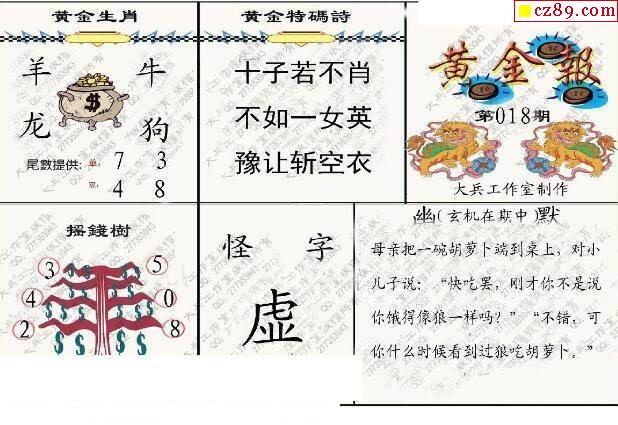 cz89.com
黄金生肖
羊 牛
龙 狗
尾數提供: 单: 7 3
双: 4 8
黄金特碼詩
十子若不肖
不如一女英
豫让斩空衣
黄金報
第018期
大兵工作室制作
摇錢樹
3 5
4 0
2 8
怪字
虚
幽(玄机在期中)默
母亲把一碗胡萝卜端到桌上，对小
儿子说：“快吃罢，刚才你不是说
你饿得像狼一样吗？”“不错，可
你什么时候看到过狼吃胡萝卜。”